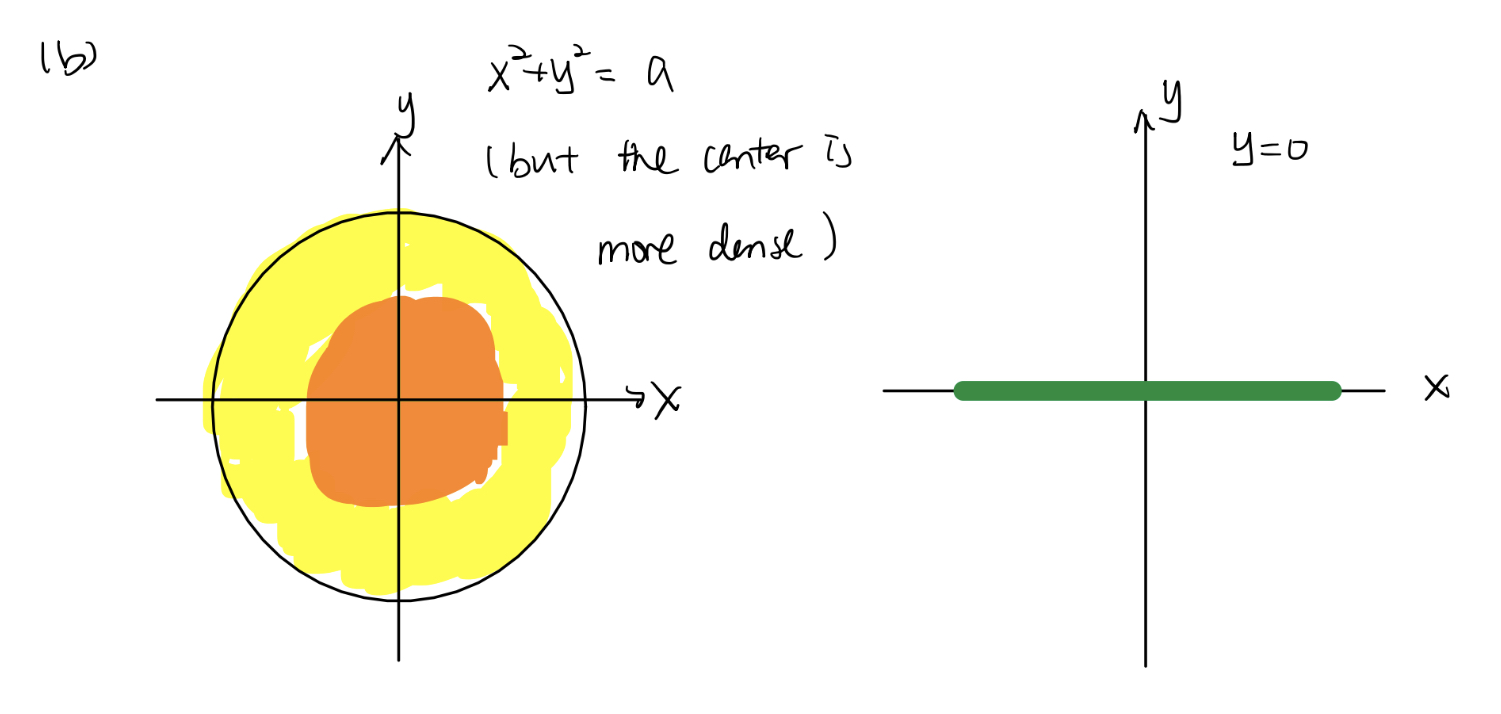 (b)
x²+y² = a
(but the center is
more dense)
y
x
y
y=0
x